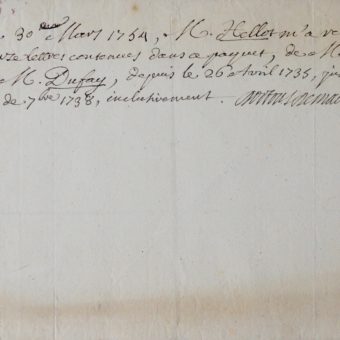 30 Mars 1754, M. Hellot m'a re
ze lettres contenues dans ce paquet, de M
M. Dufay, depuis le 26 Avril 1735, ju
de 7bre 1738, inclusivement.